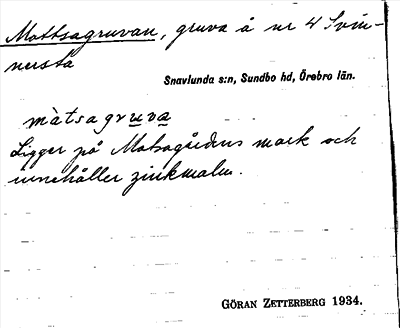 Mattsagruvan, gruva å nr 4 Svin-
nersta
Snavlunda s:n, Sundbo hd, Örebro län.
màtsagruva
Ligger på Matsagårdens mark och
innehåller zinkmalm.
GÖRAN ZETTERBERG 1934.